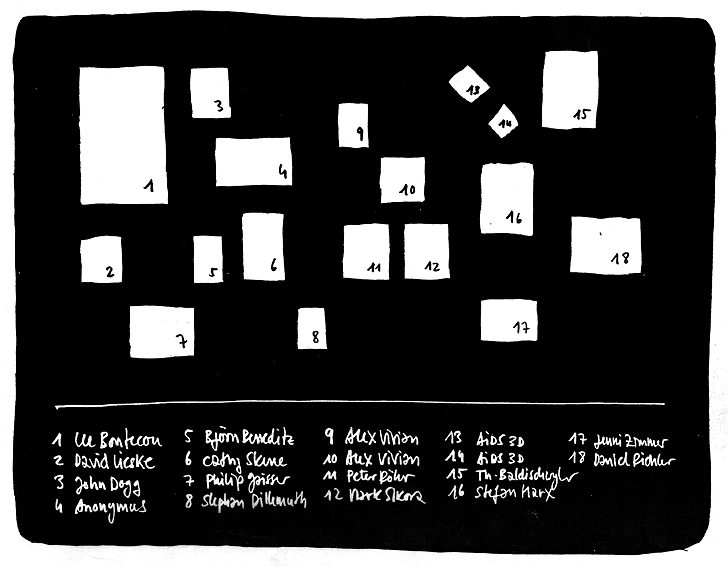 13
15
3
14
9
4
1
10
16
18
2
5
6
11
12
17
7
8
1 Lee Bontecou
2 David Lieske
3 John Dogg
4 Anonymus
5 Björn Beneditz
6 Cathy Skene
7 Philip Gaisser
8 Stephan Dillemuth
9 Alex Vivian
10 Alex Vivian
11 Peter Röhr
12
13 AIDS 3D
14 AIDS 3D
15 Th. Baldischwyler
16 Stefan Marx
17 Jenni Zimmer
18 Daniel